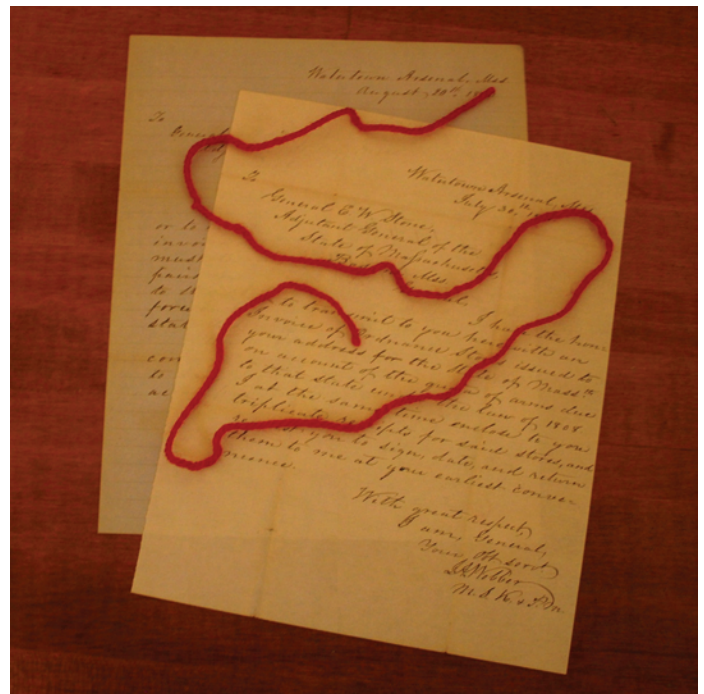 Watertown Arsenal, Mss.
August, 20th, 18
To
General
or to
invoi
must
pairs
to 18
fore
stat
con
to
ac
Watertown Arsenal, Mss.
July 30th,
To
General E W Stone,
Adjutant General of the
State of Massachusetts,
Mss.
I have the honor
to transmit to you herewith an
Invoice of Ordnance Stores issued to
your address for the State of Masstts
on account of the quota of arms due
to that state under the law of 1808
I at the same time enclose to you
triplicate receipts for said stores, and
request you to sign, date, and return
them to me at your earliest conven
nience.
With great respect,
I am, General,
Your Obt servt
Webber
M. S. K.